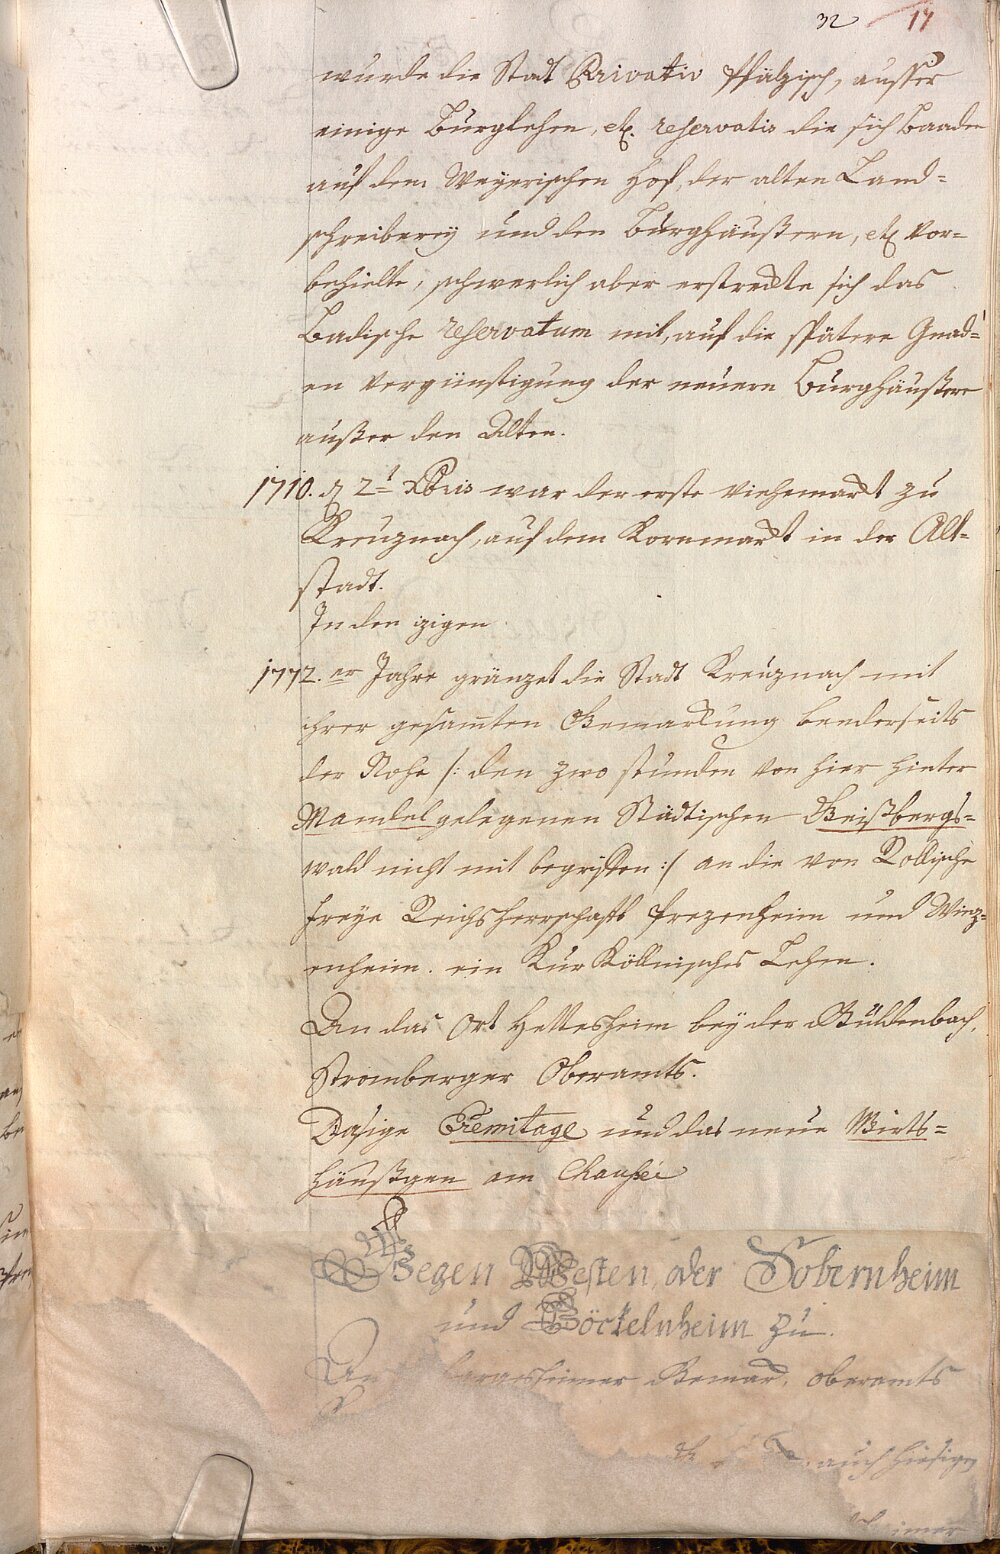 32 17
wurde die Stadt Privativ Pfälzisch, ausser
einige Burglehen, etc. reservatis die sich Baaden
auf dem Weyerischen Hof, der alten Land=
schreiberey und den Burghäußern, etc. vor=
behielte, schwerlich aber erstreckte sich das
Badische reservatum mit, auf die spätere Gnad=
en Vergünstigung der neuern Burghäußere
außer den Alten.
1710. d 2t xbris war der erste Viehemarckt zu
Kreuznach, auf dem Kornmarckt in der Alt=
stadt.
In den izigen
1772.er Jahre gränzet die Stadt Kreuznach mit
ihrer gesamten Gemarckung beederseits
der Nohe /: den zwo stunden von hier hinter
Mandel gelegenen Städtischen Geißbergs=
wald nicht mit begriffen :/ an die von Rollische
freye Reichsherrschaft Prezenheim und Winz=
enheim. ein Kur Köllnisches Lehen.
An das Ort Hettesheim bey der Güldenbach,
Stromberger Oberamts.
Dasige Eremitage und das neue Wirts=
häußgen am Chaussée
Gegen Westen, oder Sobernheim
und Böckelnheim zu.
An Gemarck. oberamts
auch hiesigen